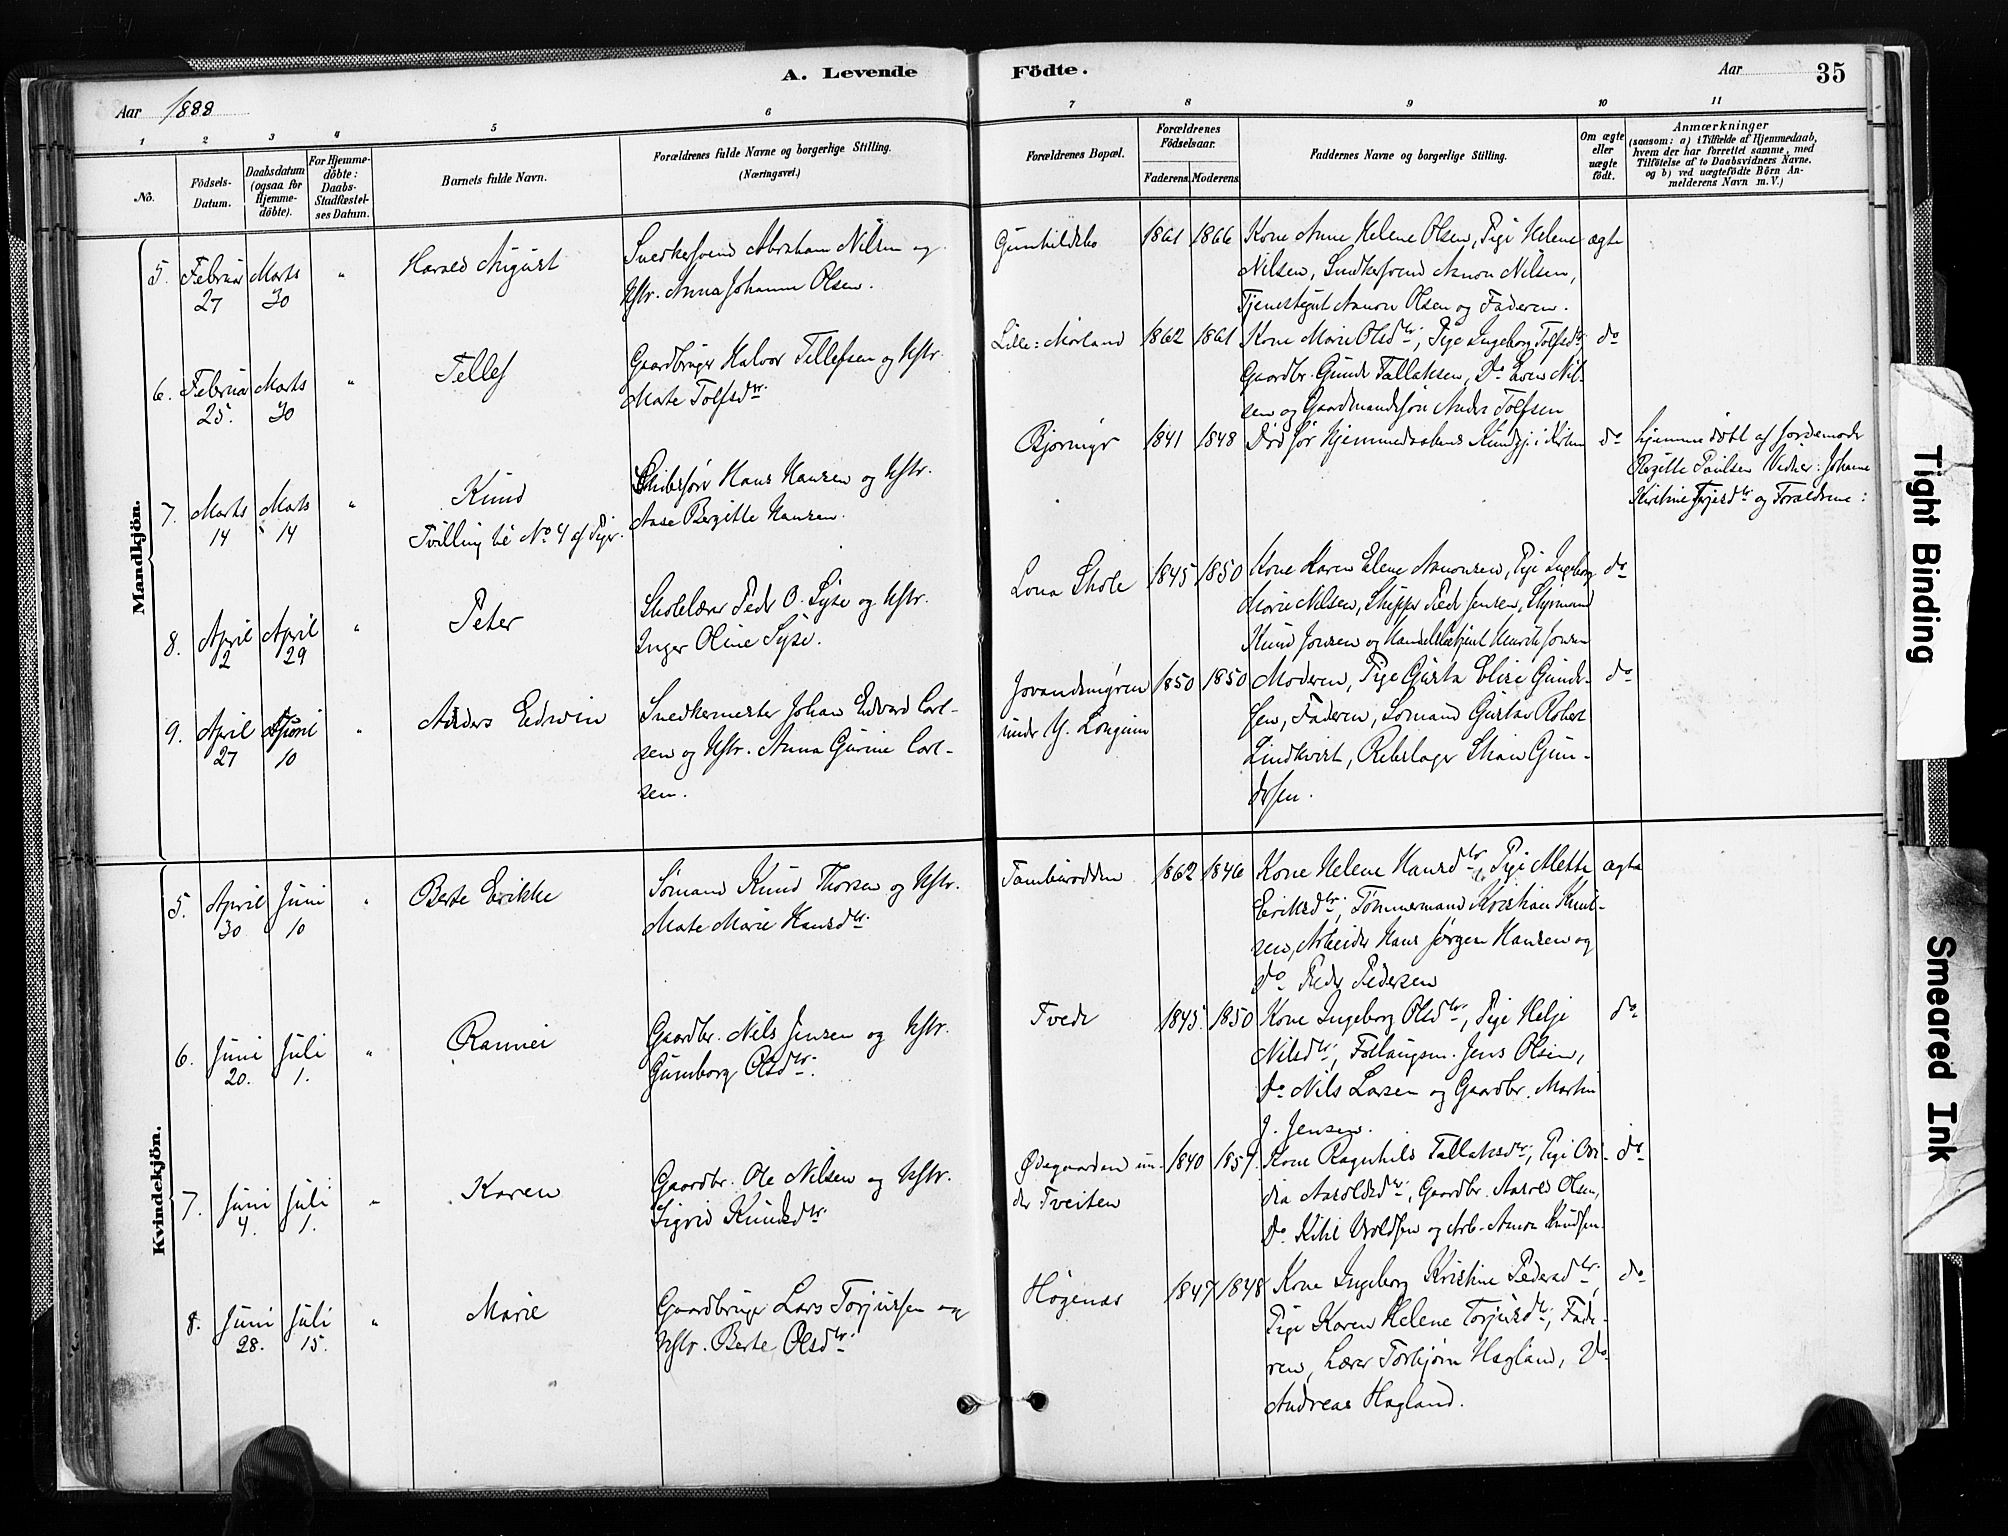 A. Levende Födte.
Aar 1888
Aar 35
1 2 3 4 5 6 7 8 9 10 11
No.
Födsels-
Datum.
Daabsdatum
(ogsaa for
Hjemme-
döbte).
For Hjemme-
döbte:
Daabs-
Stadfæstel-
ses Datum.
Barnets fulde Navn.
Forældrenes fulde Navne og borgerlige Stilling.
(Næringsvei.)
Forældrenes Bopæl.
Forældrenes
Födselsaar.
Faderens. Moderens.
Faddernes Navne og borgerlige Stilling.
Om ægte
eller
uægte
födt.
Anmærkninger
(saasom: a) i Tilfælde af Hjemmedaab,
hvem der har forrettet samme, med
Tilföielse af to Daabsvidners Navne,
og b) ved uægtefödte Börn An-
melderens Navn m. V.)
Mandkjön.
5. Februar 27 Marts 30 " Harald August
Snedkersvend Abraham Nilsen og
Hstr. Anna Johanne Olsen.
Gunhildsbo 1861 1866
Kone Anne Helene Olsen, Pige Helene
Nilsen, Snedkersvend Aanon Nilsen,
Tjenestegut Aanon Olsen og Faderen.
ægte
6. Februar 25. Marts 30 " Tellef
Gaardbruger Halvor Tellefsen og Hstr.
Mate Tolfsdtr.
Lille: Mørland 1862 1861
Kone Marie Olsdtr, Pige Ingeborg Tolfsdtr.
Gaardbr. Gunde Tallaksen, Do Lars Nil-
sen og Gaardmandssøn Anders Tolfsen
do
7. Marts 14 Marts 14 " Knud
Tvilling til No 4 af Piger.
Hans Hansen og Hstr.
Aase Bergitte Hansen.
Bjørmyr 1841 1848
Død før Hjemmedaabens Kundgj. i Kirken
do
Hjemmedøbt af Jordemoder
Regitte Paulsen Vidner: Johanne
Kirstine Terjesdtr og Forældrene:
8. April 2 April 29 " Peter
Skolelærer Peder O. Syse og Hstr.
Inger Oline Syse.
Lona Skole 1845 1850
Kone Karen Elene Aanonsen, Pige Ingeborg
Marie Nilsen, Skipper Peder Jensen, Styrmand
Knud Jensen og Handelsbetjent Henrik Jensen
do
9. April 27 Juni 10 " Anders Edwin
Snedkermester Johan Edvard Carl-
sen og Hstr. Anna Gurine Carl-
sen.
Jovandsmyren
under Y. Longum 1850 1850
Moderen, Pige Gusta Elise Gunder-
sen, Faderen, Sømand Gustav Robert
Lindkvist, Rebslager Stian Gun-
dersen.
do
Kvindekjön.
5. April 30 Juni 10 " Berte Erikke
Sømand Knud Thorsen og Hstr.
Mate Marie Hansdtr.
Tamburodden 1862 1846
Kone Helene Hansdtr, Pige Mette
Eriksdtr, Tømmermand Kristian Knut-
sen, Arbeider Hans Jørgen Hansen og
do Peder Pedersen
ægte
6. Juni 20. Juli 1. " Rannei
Gaardbr. Nils Jensen og Hstr.
Gunborg Olsdtr.
Tvede 1845 1850
Kone Ingeborg Olsdtr, Pige Helje
Nilsdtr, Følaugsm. Jens Olsen,
do Nils Larsen og Gaardbr. Martin
J. Jensen.
do
7. Juni 4. Juli 1. " Karen
Gaardbr. Ole Nilsen og Hstr.
Sigrid Knudsdtr.
Ødegaarden un-
der Tveiten 1840 1857
Kone Ragnhild Tallaksdtr, Pige Ovi-
dia Aaroldsdtr, Gaardbr. Aarold Olsen,
Do Kitil Aroldsen og Arb. Aanon Knudsen.
do
8. Juni 28. Juli 15. " Marie
Gaardbruger Lars Torjussen og
Hstr. Berte Olsdtr.
Høgenæs 1847 1848
Kone Ingeborg Kristine Pedersdtr,
Pige Karen Helene Torjusdtr, Fade-
ren, Lærer Torbjørn Hagland, Do
Andreas Hagland.
do
Tight Binding
Smeared Ink